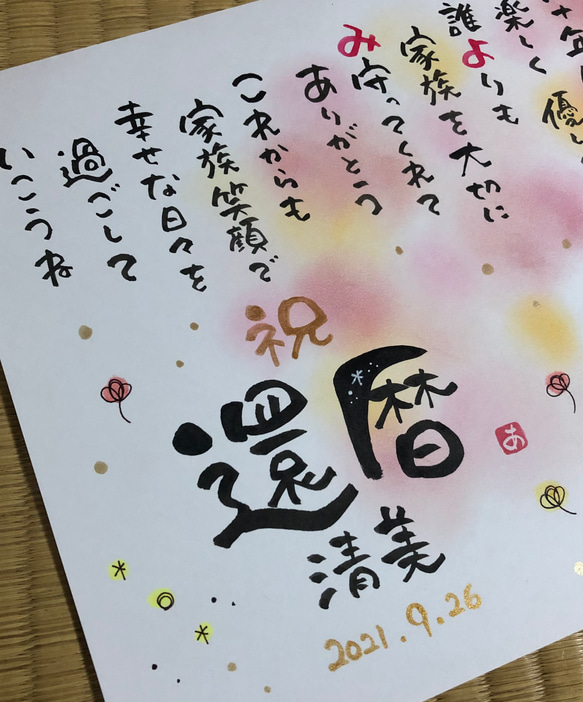 楽しく
誰よりも
家族を大切に
み守ってくれて
ありがとう
これからも
家族笑顔で
幸せな日々を
過ごして
いこうね
祝
還暦
清美
2021.9.26
あ